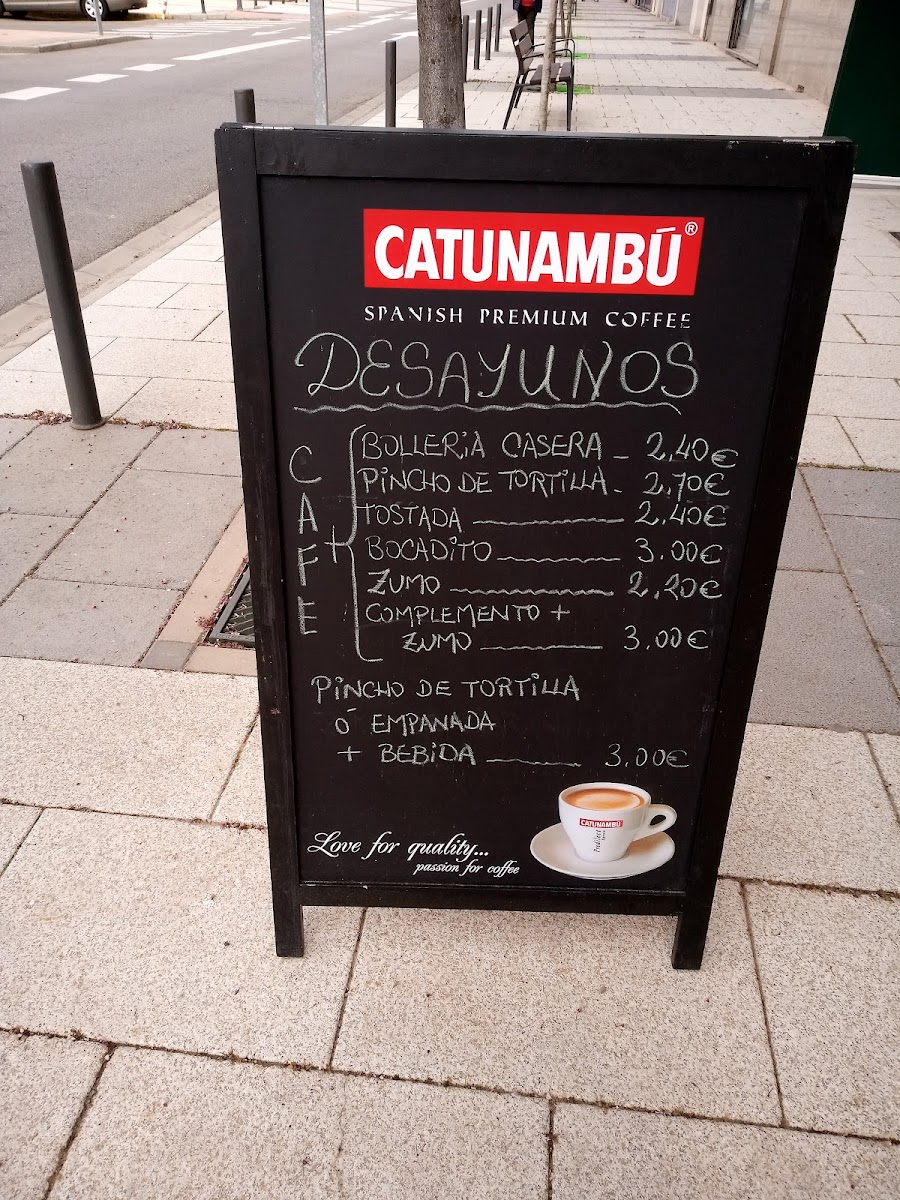 CATUNAMBÚ®
SPANISH PREMIUM COFFEE
DESAYUNOS
CAFE +
BOLLERIA CASERA - 2,40€
PINCHO DE TORTILLA - 2,70€
TOSTADA 2,40€
BOCADITO 3.00€
ZUMO 2,20€
COMPLEMENTO +
ZUMO 3,00€
PINCHO DE TORTILLA
Ó EMPANADA
+ BEBIDA 3,00€
CATUNAMBÚ
Love for quality...
passion for coffee